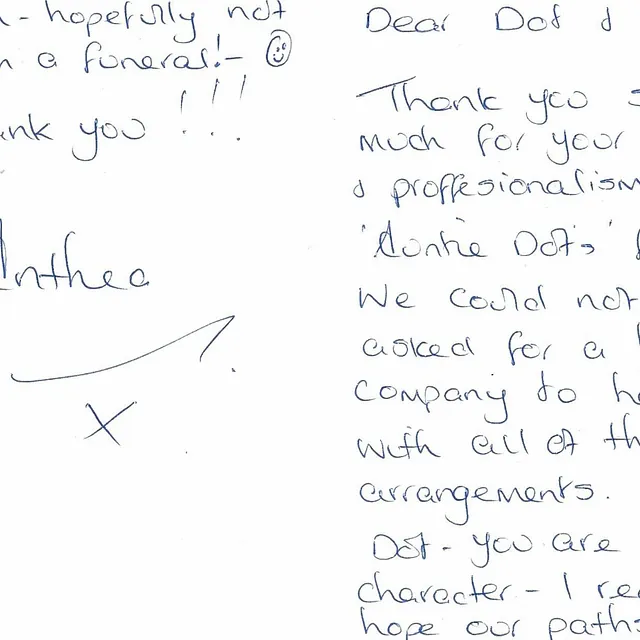 Dear Dot &
Thank you s
much for your
& proffesionalism
'Auntie Dot's'
We could not
asked for a
company to he
with all of th
arrangements.
Dot - you are
character - I re
hope our paths
- hopefully not
a funeral! - ☺
ank you !!!
Anthea
X